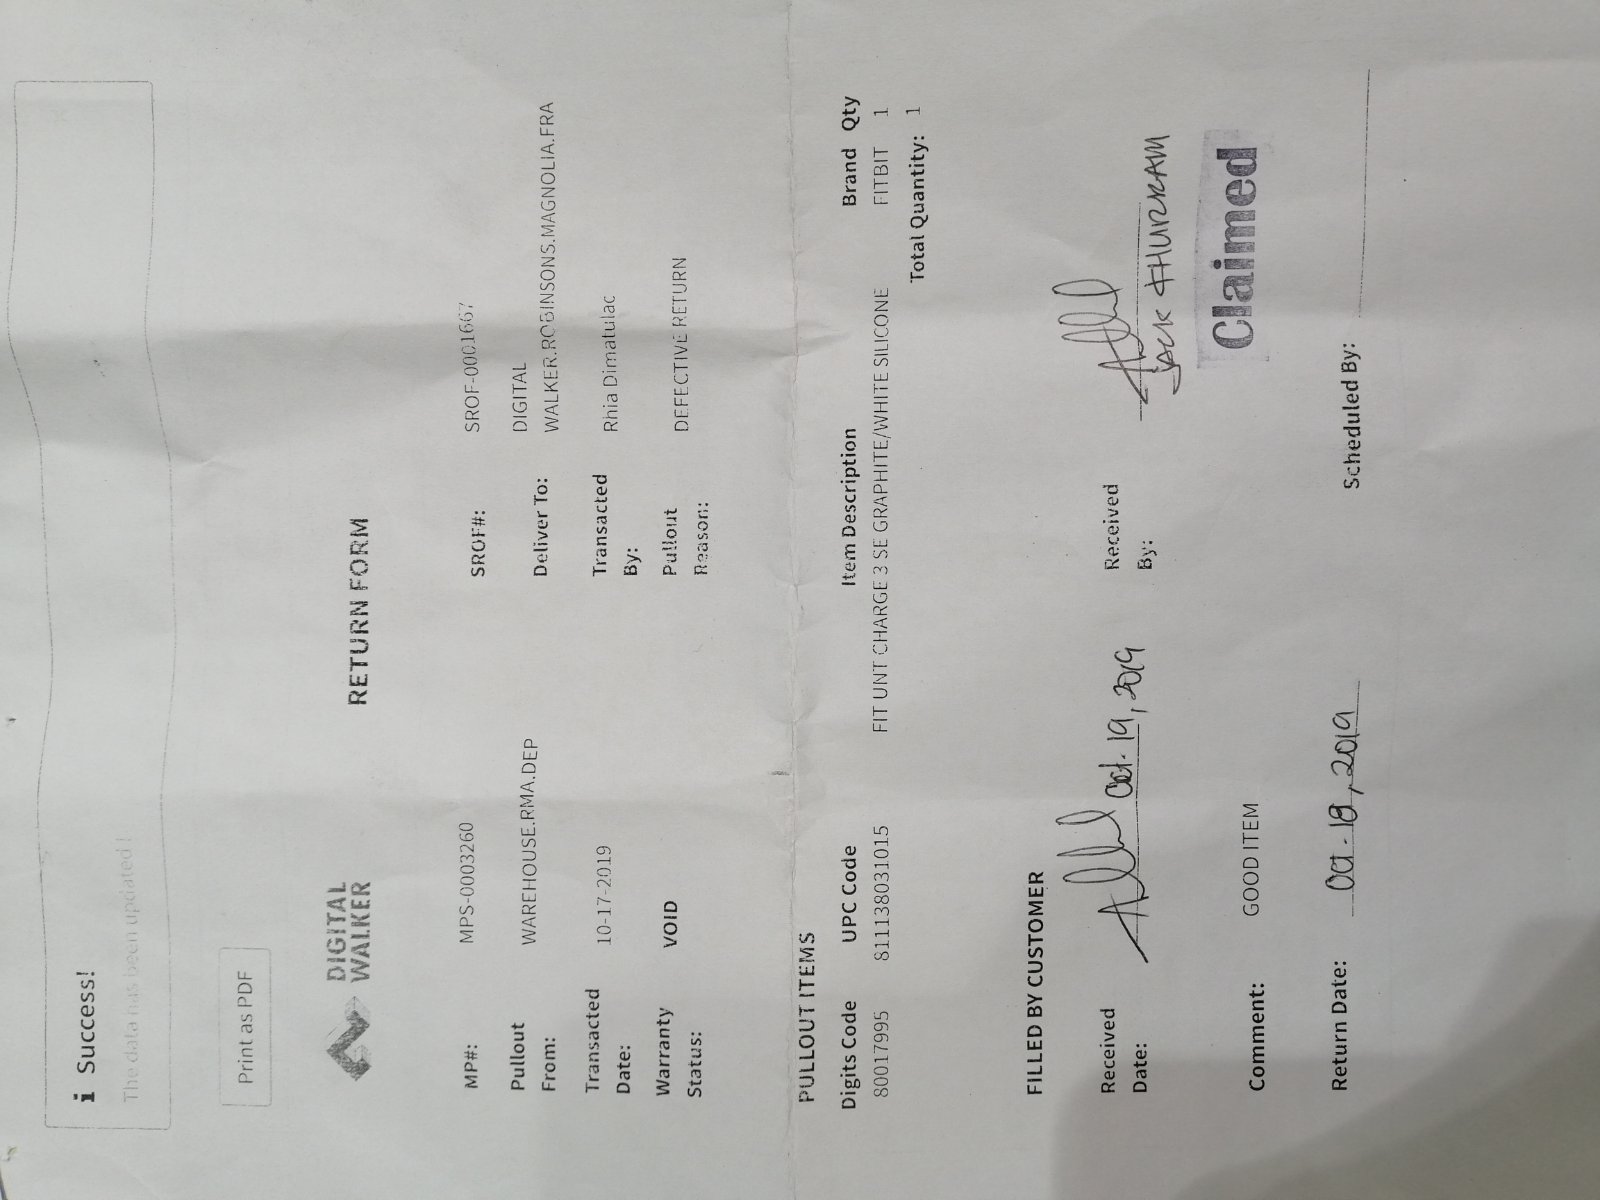 i Success!
The data has been updated!
Print as PDF
DIGITAL
WALKER
RETURN FORM
MP#: MPS-0003260 SROF#: SROF-0001667
Pullout From: WAREHOUSE.RMA.DEP Deliver To: DIGITAL
WALKER.ROBINSONS.MAGNOLIA.FRA
Transacted Date: 10-17-2019 Transacted By: Rhia Dimatulac
Warranty Status: VOID Pullout Reason: DEFECTIVE RETURN
PULLOUT ITEMS
Digits Code UPC Code Item Description Brand Qty
80017995 811138031015 FIT UNT CHARGE 3 SE GRAPHITE/WHITE SILICONE FITBIT 1
Total Quantity: 1
FILLED BY CUSTOMER
Received Date: Oct. 19, 2019 Received By:
JACK KHURRAM
Comment: GOOD ITEM Claimed
Return Date: Oct. 18, 2019 Scheduled By: